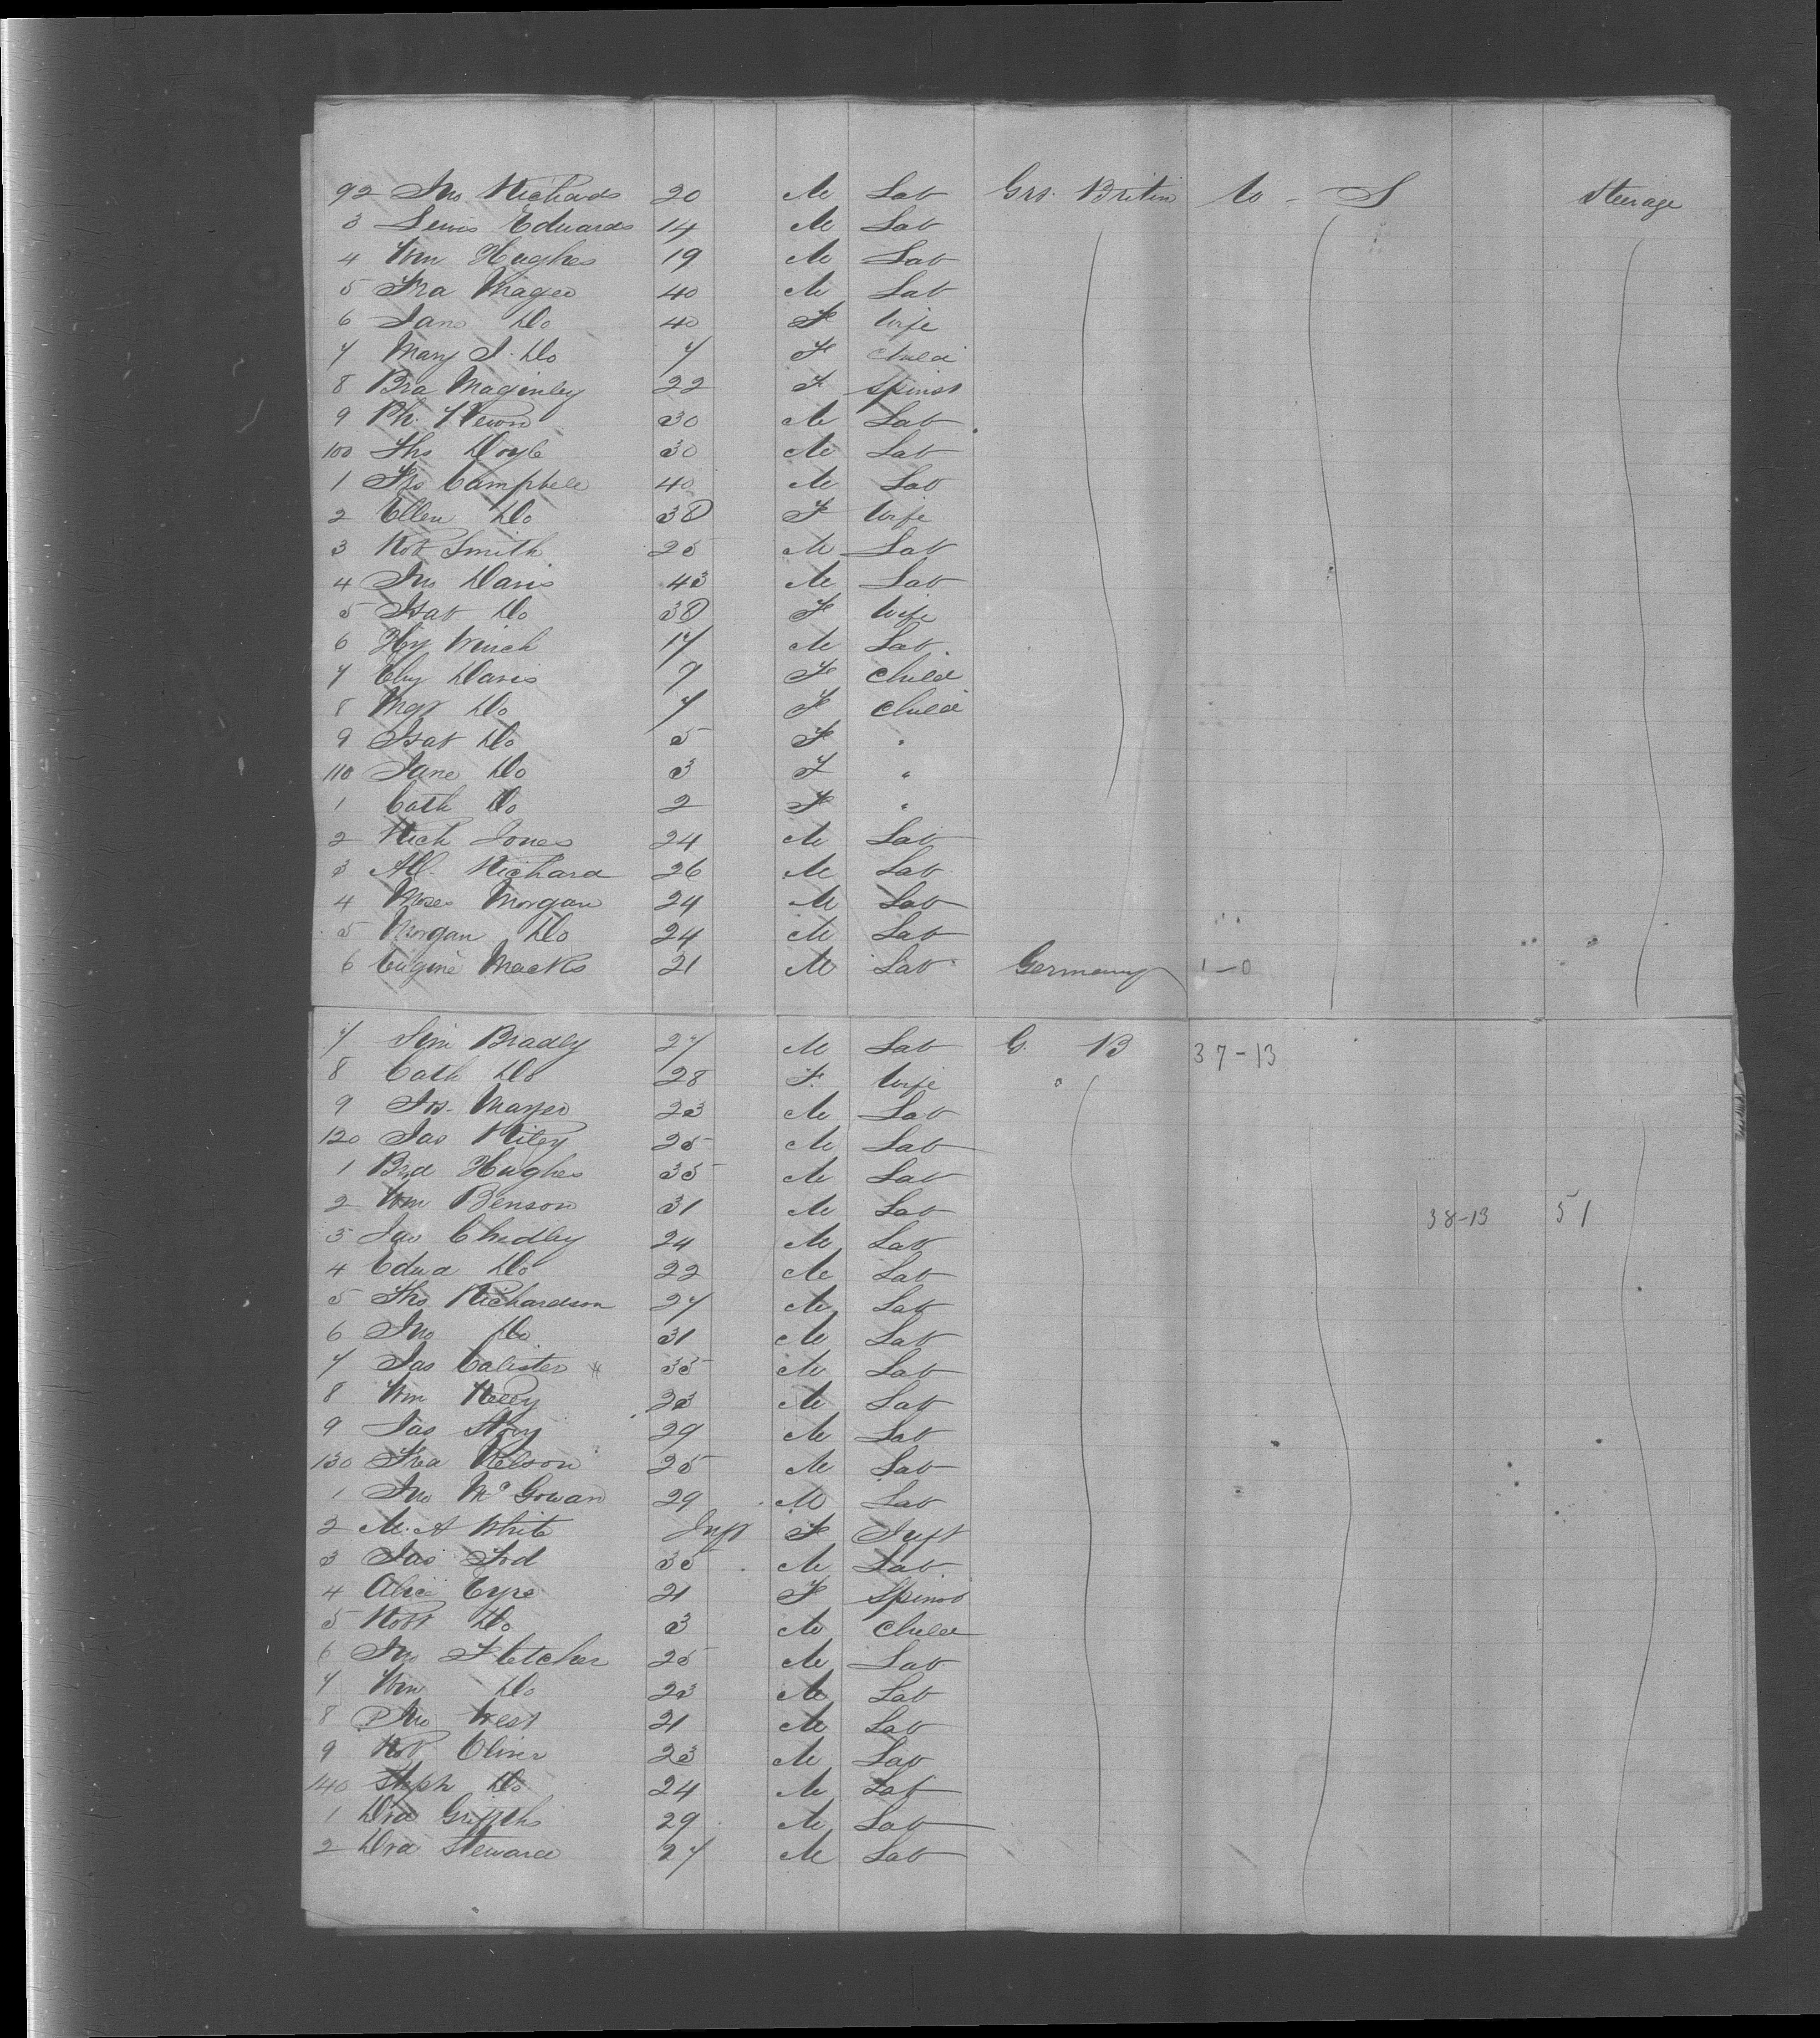 92 Jno Richards 20 M Lab Grt. Britin U - S Steerage
3 Lewis Edwards 14 M Lab
4 Wm Hughes 19 M Lab
5 Fra 40 M Lab
6 Jane Do 40 F Wife
7 Mary J. Do 7 F Child
8 Maginley 22 F Spinst
9 30 M Lab
100 Ths Doyle 30 M Lab
1 Campbell 40 M Lab
2 Ellen Do 38 F Wife
3 Robt Smith 25 M Lab
4 Jno Davis 43 M Lab
5 Isab Do 38 F Wife
6 Hy 17 M Lab
7 Davis 9 F Child
8 Mgt Do 7 F Child
9 Isab Do 5 F "
110 Jane Do 3 F "
1 Cath Do 2 F "
2 Rich Jones 24 M Lab
3 Richard 26 M Lab
4 Moses Morgan 24 M Lab
5 Morgan Do 24 M Lab
6 Eugine Macks 21 M Lab Germany 1-0
7 Bradly 27 M Lab G. B 37-13
8 Cath Do 28 F Wife
9 23 M Lab
120 Jas Riley 25 M Lab
1 Hughes 35 M Lab
2 Wm Benson 31 M Lab 38-13 51
3 Jas Chedley 24 M Lab
4 Edwd Do 22 M Lab
5 Ths Richardson 27 M Lab
6 Jno Do 31 M Lab
7 Jas Calister 35 M Lab
8 Wm 23 M Lab
9 Jas 29 M Lab
130 Nelson 25 M Lab
1 Jno McGowan 29 M Lab
2 M. A White Inft F Inft
3 Jas Ford 35 M Lab
4 Alice Eyre 21 F Spinst
5 Robt Do 3 M Child
6 Jno Fletcher 25 M Lab
7 Wm Do 23 M Lab
8 Jno West 21 M Lab
9 Robt Oliver 23 M Lab
140 Steph Do 24 M Lab
1 Dvd Griffiths 29 M Lab
2 Dvd Steward 27 M Lab